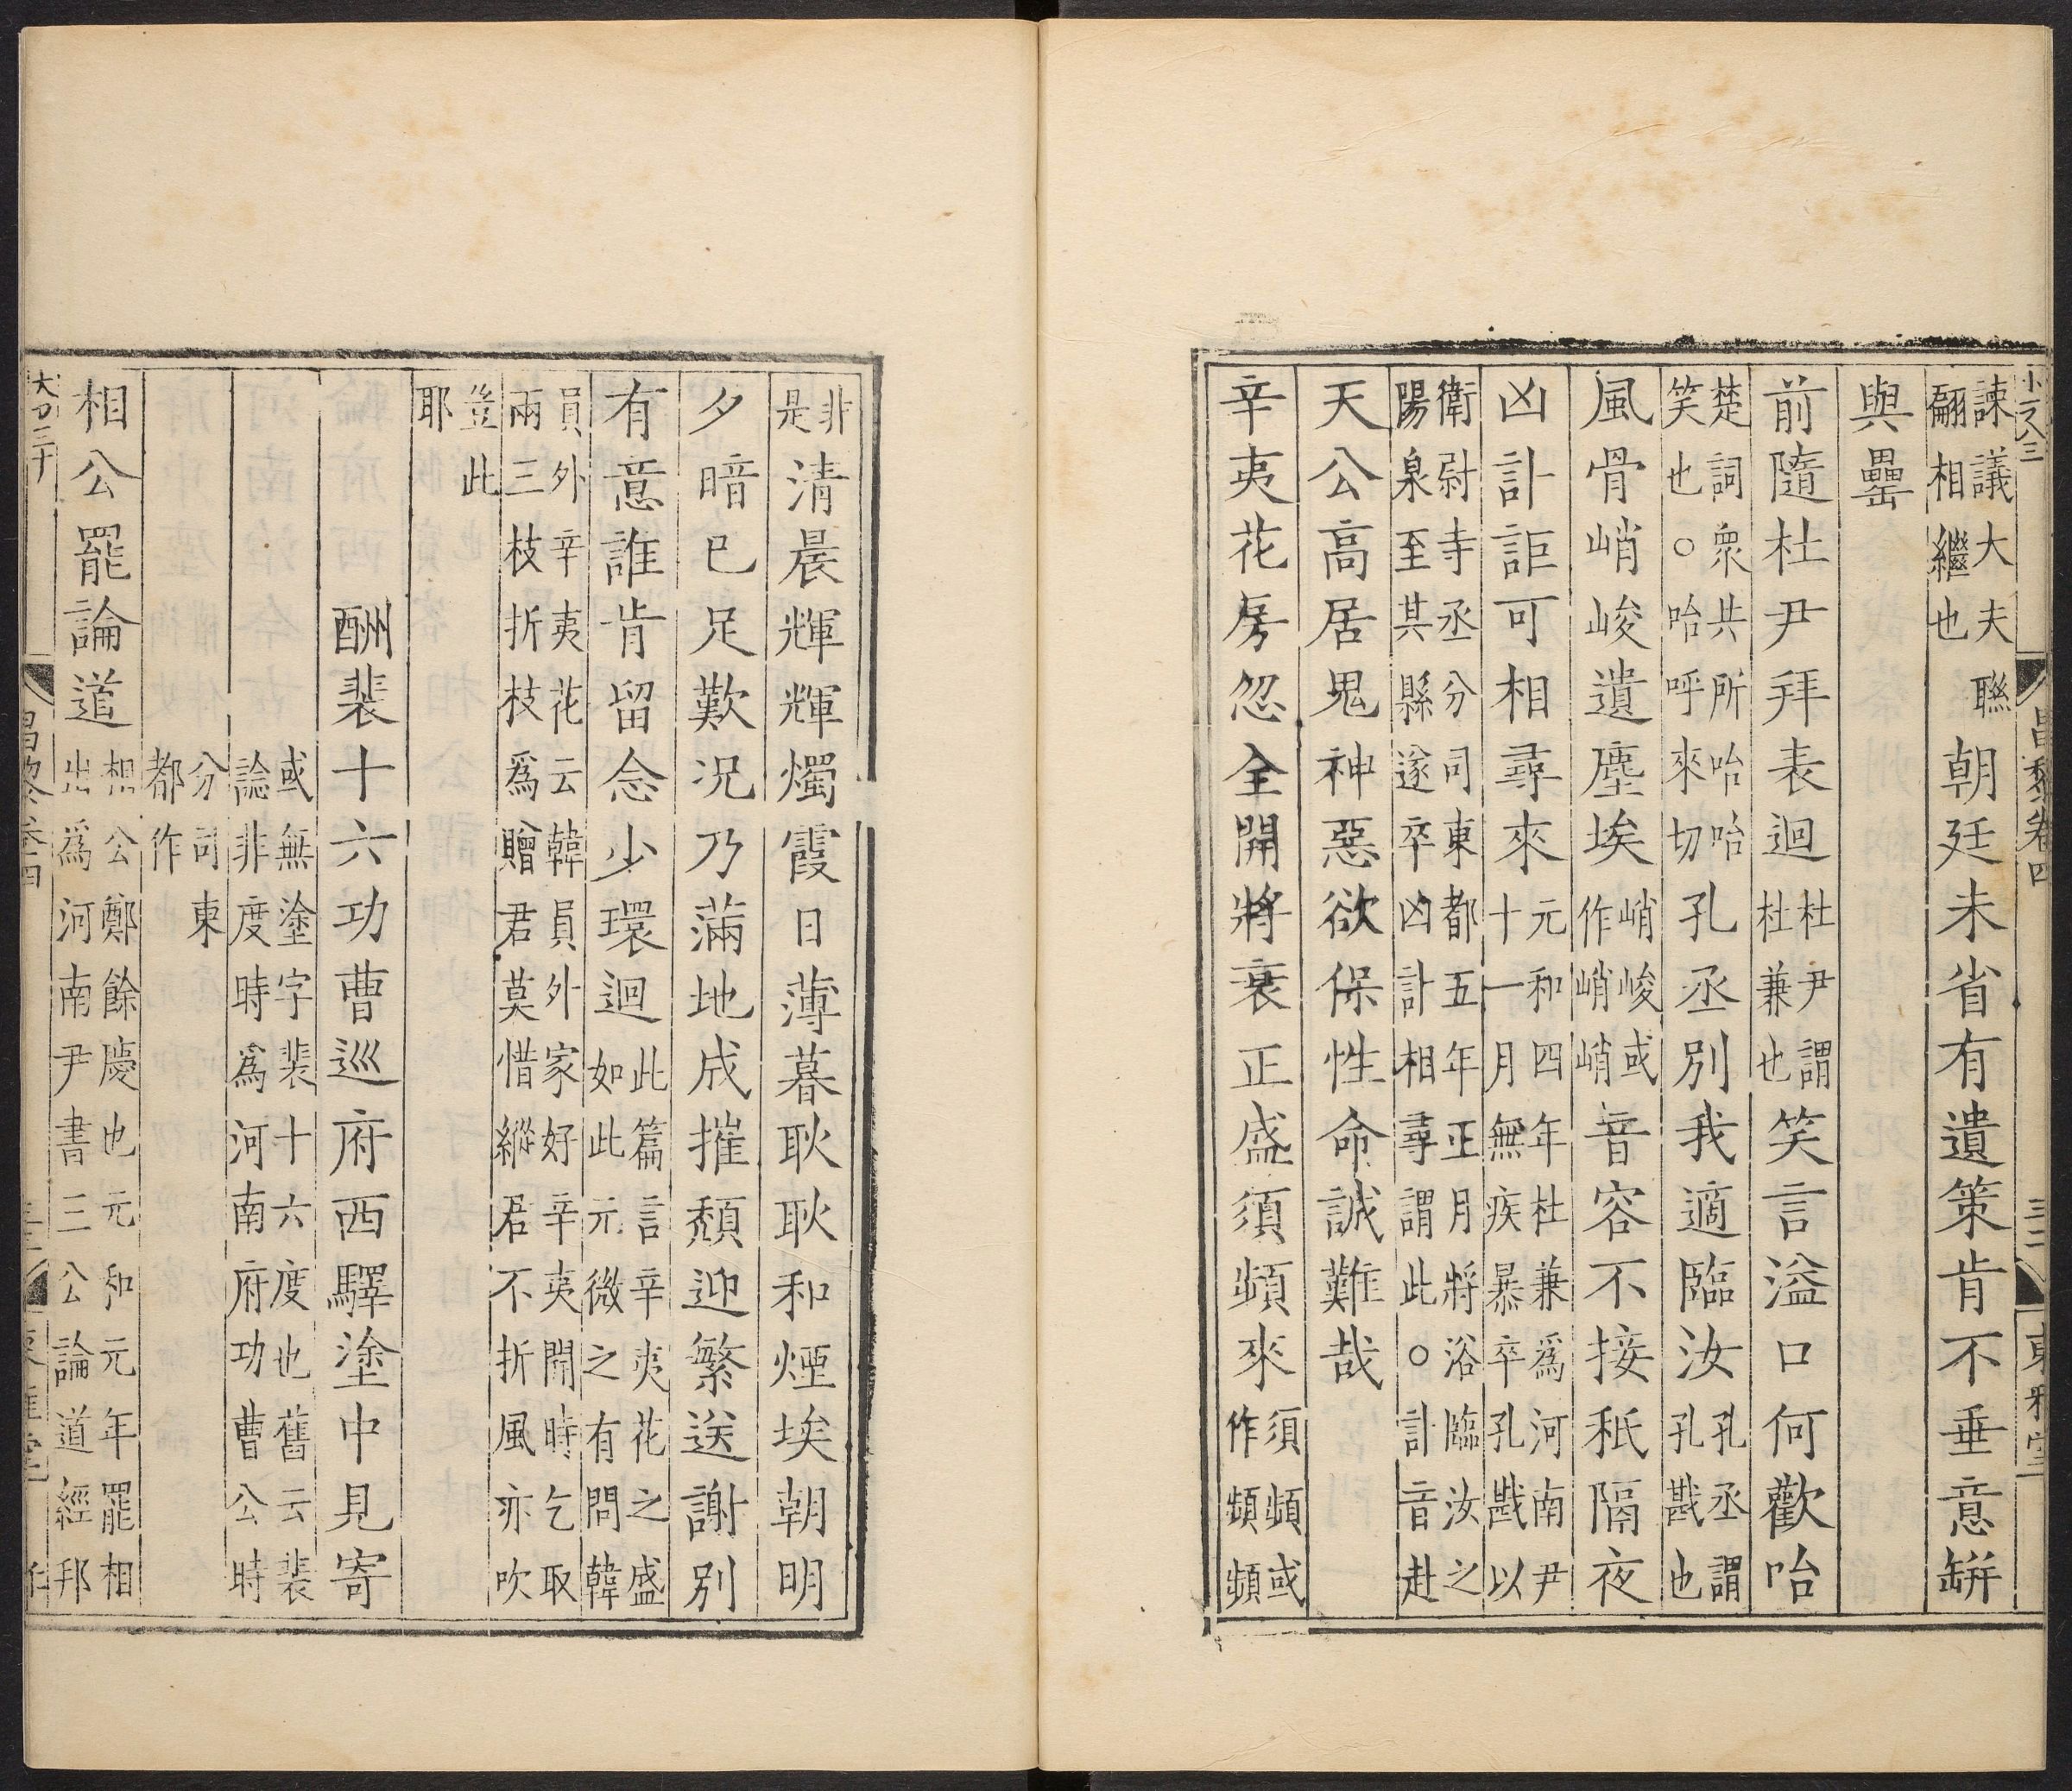 諫議大夫聯
翩相繼也
朝廷未省有遺策肯不垂意缾
與罍
前隨杜尹拜表迴
杜尹謂
杜兼也
笑言溢口何歡咍
楚詞衆共所咍咍
笑也○咍呼來切
孔丞別我適臨汝
孔丞謂
孔戡也
風骨峭峻遺塵埃
峭峻或
作峭峭
音容不接秖隔夜
凶訃詎可相尋來
元和四年杜兼爲河南尹
十一月無疾暴卒孔戡以
衛尉寺丞分司東都五年正月將浴臨汝之
陽泉至其縣遂卒凶訃相尋謂此○訃音赴
天公高居鬼神惡欲保性命誠難哉
辛夷花房忽全開將衰正盛須頻來
須頻或
作頻頻
昌黎卷四
東雅堂
非
是
清晨輝輝燭霞日薄暮耿耿和煙埃朝明
夕暗已足歎况乃滿地成摧頹迎繁送謝別
有意誰肯留念少環迴
此篇言辛夷花之盛
如此元微之有問韓
員外辛夷花云韓員外家好辛夷開時乞取
兩三枝折枝爲贈君莫惜縱君不折風亦吹
豈此
耶
酬裴十六功曹巡府西驛塗中見寄
或無塗字裴十六度也舊云裴
諗非度時爲河南府功曹公時
分司東
都作
相公罷論道
相公鄭餘慶也元和元年罷相
出爲河南尹書三公論道經邦
昌黎卷四
東雅堂